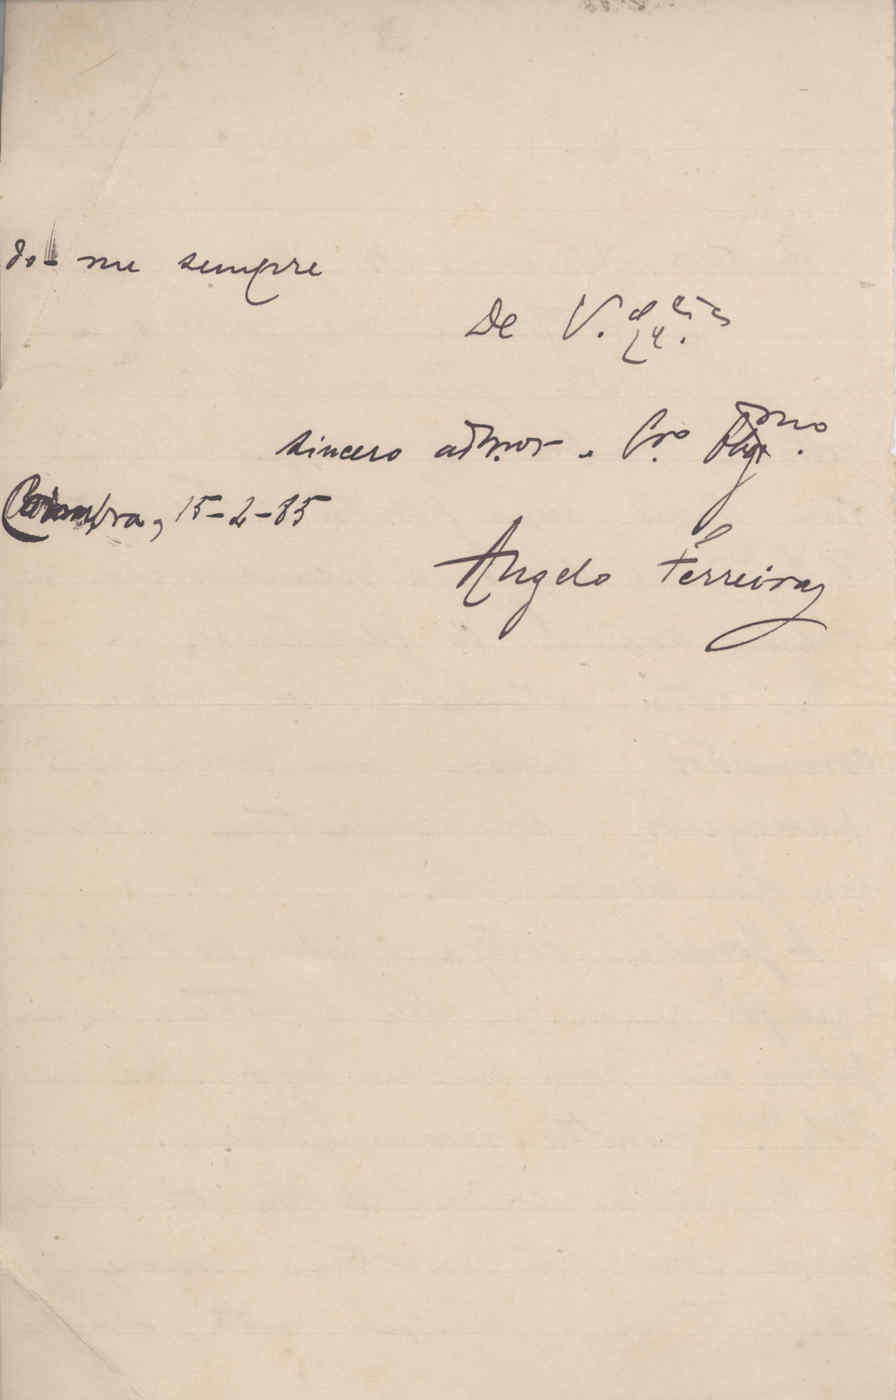 do-me sempre
De V. Ex.cia
sincero adm.or e Cr.o Obg.mo
Coimbra, 15-2-85
Angelo Ferreira